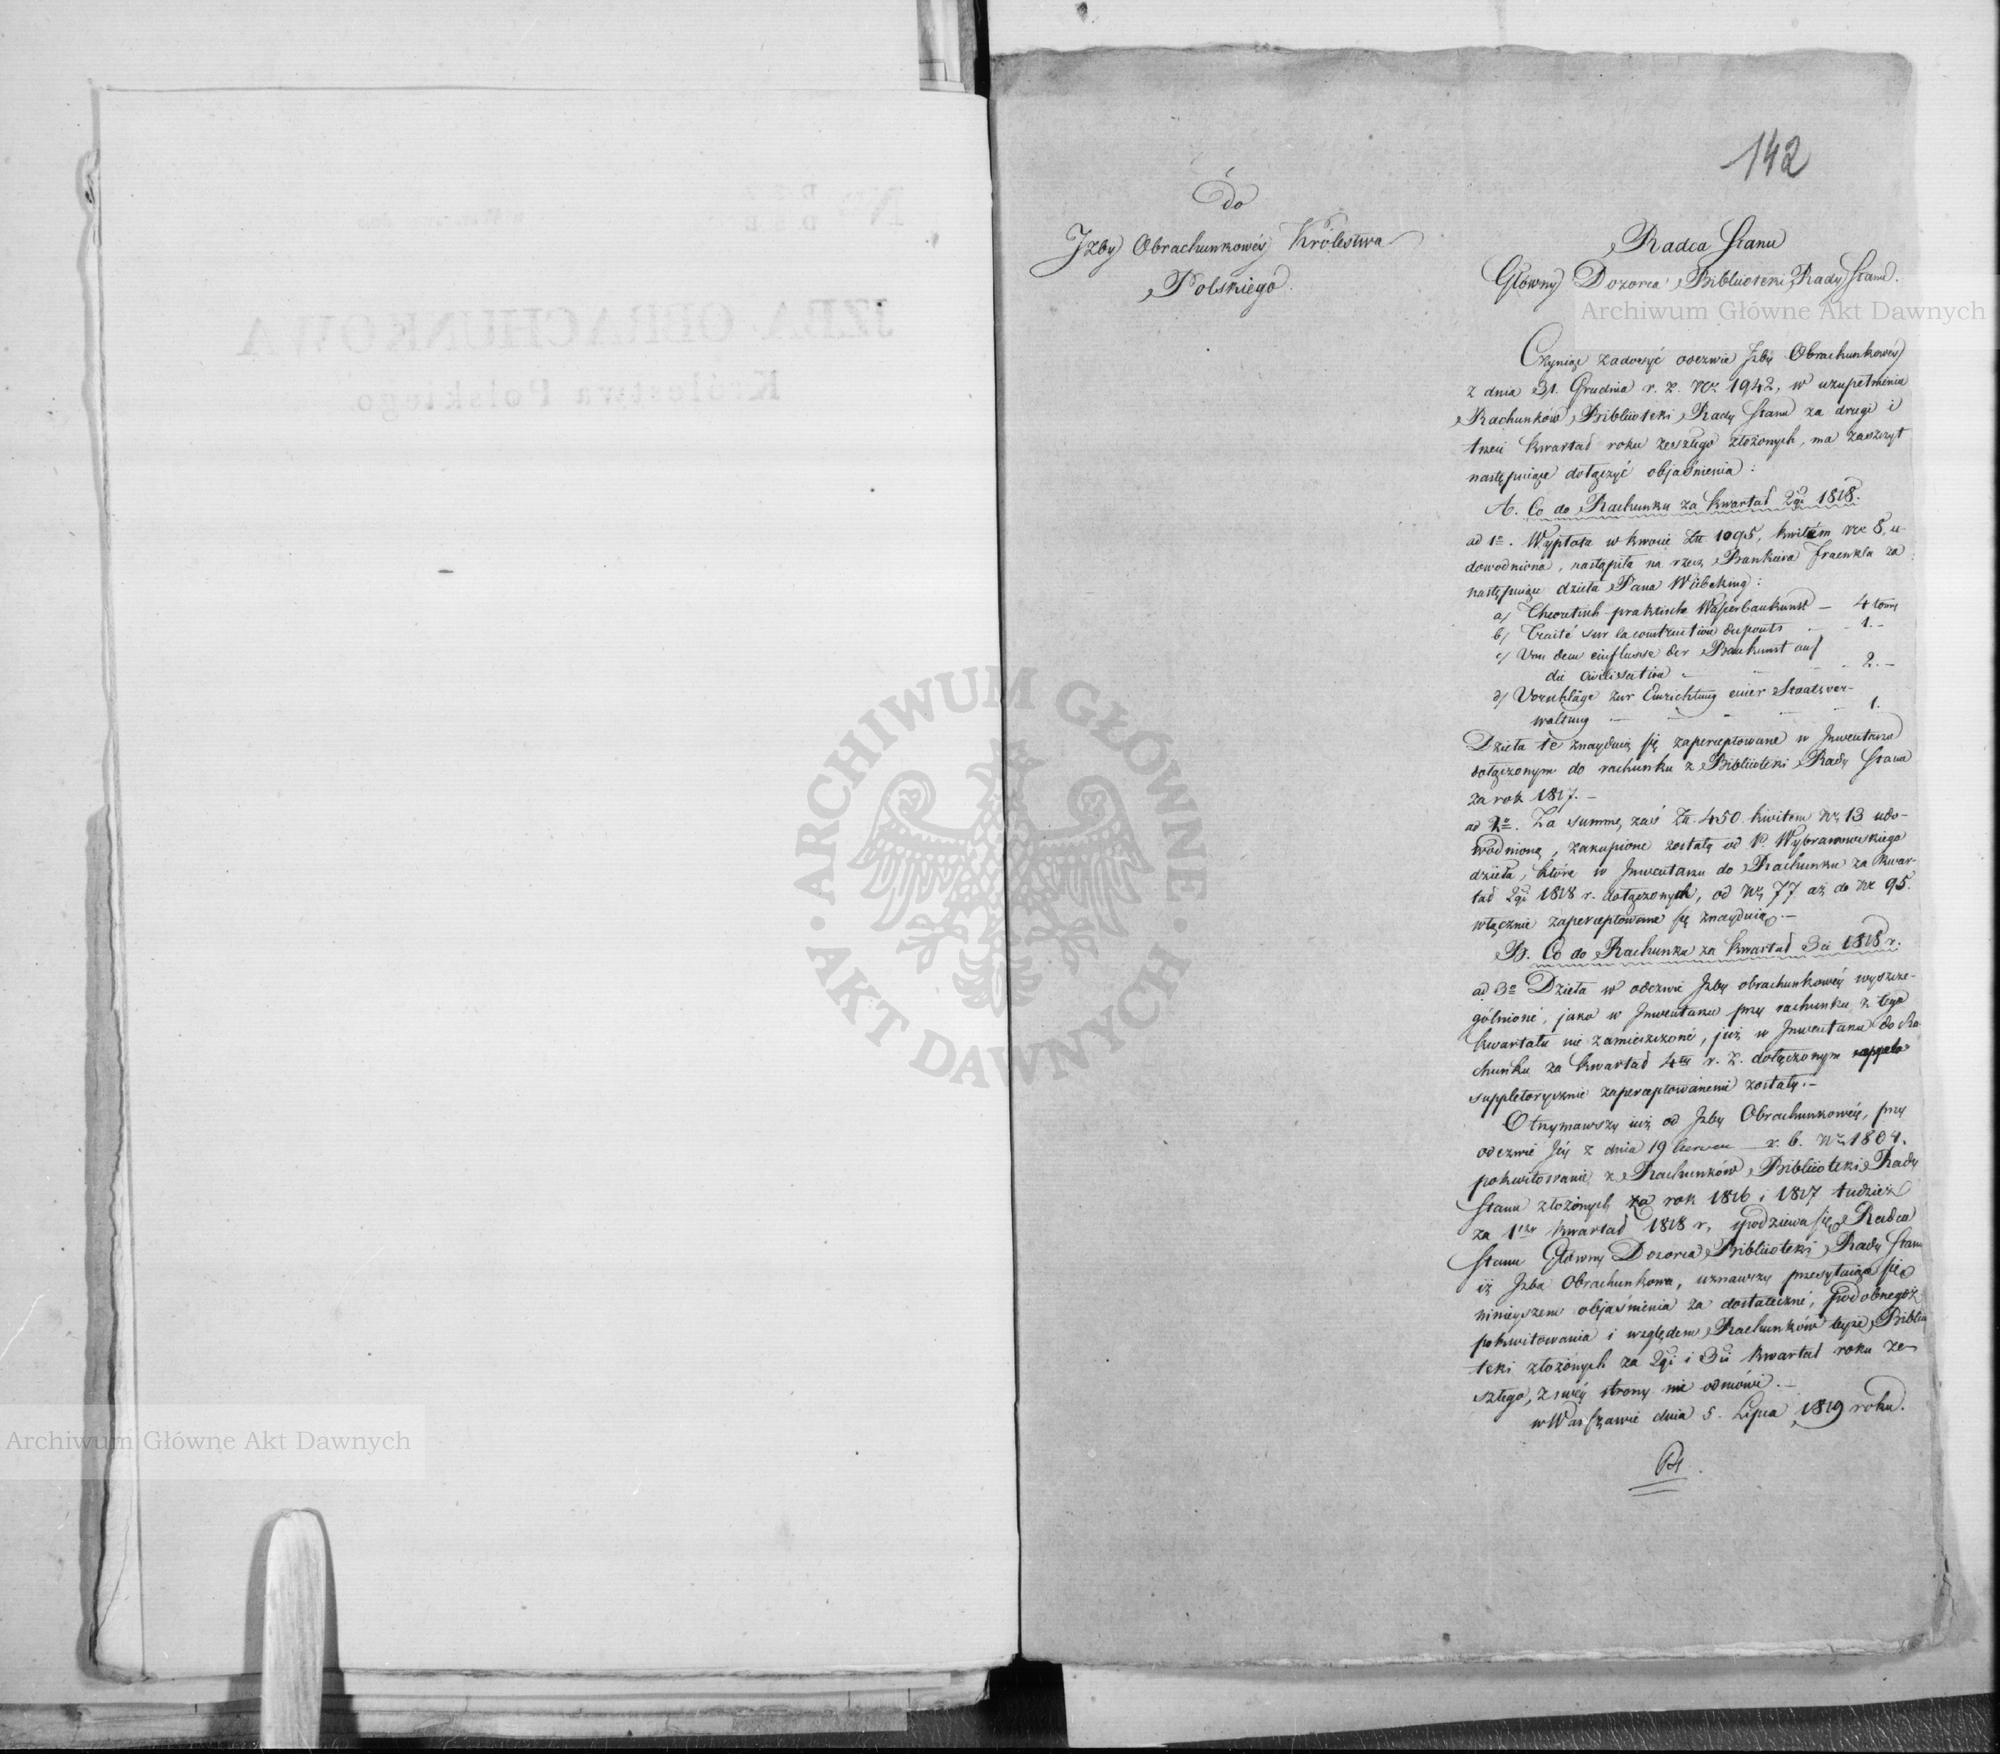 142
Do
Jzby Obrachunkowéy Królestwa
Polskiego.
Radca Stanu
Główny Dozorca Biblioteki Rady Stanu.
Czyniąc zadosyć odezwie Jzby Obrachunkowéy
z dnia 31. Grudnia r. z. Nr. 1942, w uzupełnieniu
Rachunków Biblioteki Rady Stanu za drugi i
trzeci kwartał roku zeszłego złożonych, ma zaszczyt
następuiące dołączyć obiaśnienia:
A. Co do Rachunku za kwartał 2gi 1818.
ad 1o. Wypłata w kwocie Zł. 1095, kwitem Nr. 8, u-
dowodniona, nastąpiła na rzecz Bankiera Fraenkla za
następuiące dzieła Pana Wiebeking:
a) Theoretisch praktische Wasserbaukunst — 4 tomy
b) Traité sur la construction des ponts - - 1.-
c) Von dem einflusse der Baukunst auf
die civilisation - - - 2.-
d) Vorschläge zur Einrichtung einer Staatsver-
waltung - - - 1.
Dzieła te znayduią się zaperceptowane w Jnwentarzu
dołączonym do rachunku z Biblioteki Rady Stanu
za rok 1817.-
ad 2o. Za summę zaś Zł. 450. kwitem Nr. 13 udo-
wodnioną, zakupione zostały od P. Wybranowskiego
dzieła, które w Jnwentarzu do Rachunku za kwar-
tał 2gi 1818 r. dołączonych, od Nr. 77 aż do Nr. 95.
włącznie zaperceptowane się znayduią.-
B. Co do Rachunku za kwartał 3ci 1818 r.
ad 3o Dzieła w odezwie Jzby obrachunkowéy wyszcze-
gólnioné, jako w Jnwentarzu przy rachunku z tego
kwartału nie zamieszczoné, już w Jnwentarzu do Ra-
chunku za kwartał 4ty r. z. dołączonym
suppletorycznie zapercepowanemi zostały.-
Otrzymawszy iuż od Jzby Obrachunkowéy, przy
odezwie Jéy z dnia 19 Czerwca r. b. Nr. 1804.
pokwitowanie z Rachunków Biblioteki Rady
Stanu złożonych za rok 1816 i 1817 tudzież
za 1szy kwartał 1818 r, spodziewa się Radca
Stanu Główny Dozorca Biblioteki Rady Stanu
iż Jzba Obrachunkowa, uznawszy przesyłaiące się
ninieyszem obiaśnienia za dostateczné, podobnegoż
pokwitowania i względem Rachunków teyże Biblio
teki złożonych za 2gi i 3ci kwartał roku ze-
szłego, z swéy strony nie odmówi.-
w Warszawie dnia 5. Lipca 1819 roku.
JZBA OBRACHUNKOWA
Królestwa Polskiego
Archiwum Główne Akt Dawnych
Archiwum Główne Akt Dawnych
ARCHIWUM GŁÓWNE AKT DAWNYCH